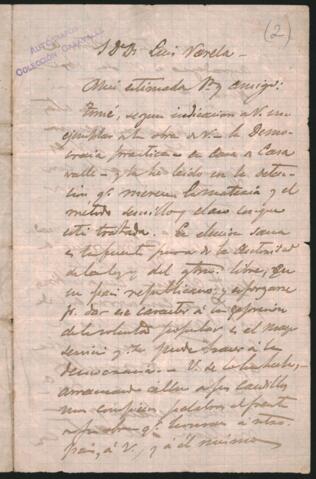 (2)
AUTÓGRAFOS
COLECCIÓN CARAVALLE
S Dr Dn Luis Varela.
Mui estimado Sr y amigo:
Tomé, segun indicacion de V. un
ejemplar de la obra de V. la Democracia
practica en casa de Casavalle
y la he leido con la detencion
qe merece la materia y el
metodo sencillo y claro con que
está tratada. La eleccion sana
es la fuente pura de la autoridad
de la ley, del gbno. libre, que
un pais republicano; y esforzarse
pr. dar ese caracter a la expresion
de la voluntad popular es el mayor
servicio qe. se puede hacer a la
democracia. V. se lo ha hecho,
arrancando de
palabras al frente
de la obra qe honran a este
pais, á V., y á él mismo